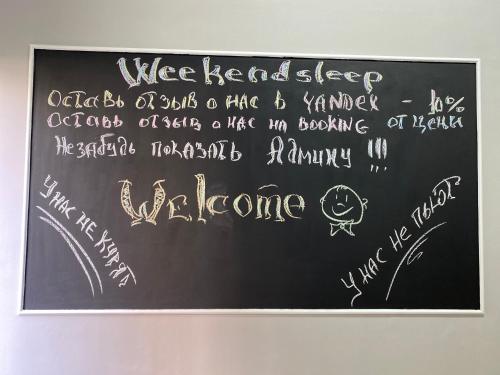 Weekendsleep
Оставь отзыв о нас в YANDEX - 10%
Оставь отзыв о нас на BOOKING от цены
Незабудь показать Админу !!!
Welcome
У нас не курят
У нас не пьют